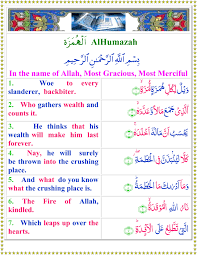 الْهُمَزَة AlHumazah
بِسْمِ اللَّهِ الرَّحْمَٰنِ الرَّحِيمِ
In the name of Allah, Most Gracious, Most Merciful
1. Woe to every
slanderer, backbiter.
وَيْلٌ لِّكُلِّ هُمَزَةٍ لُّمَزَةٍ
2. Who gathers wealth and
counts it.
الَّذِي جَمَعَ مَالًا وَعَدَّدَهُ
3. He thinks that his
wealth will make him last
forever.
يَحْسَبُ أَنَّ مَالَهُ أَخْلَدَهُ
4. Nay, he will surely
be thrown into the crushing
place.
كَلَّا لَيُنبَذَنَّ فِي الْحُطَمَةِ
5. And what do you know
what the crushing place is.
وَمَا أَدْرَاكَ مَا الْحُطَمَةُ
6. The Fire of Allah,
kindled.
نَارُ اللَّهِ الْمُوقَدَةُ
7. Which leaps up over the
hearts.
الَّتِي تَطَّلِعُ عَلَى الْأَفْئِدَةِ